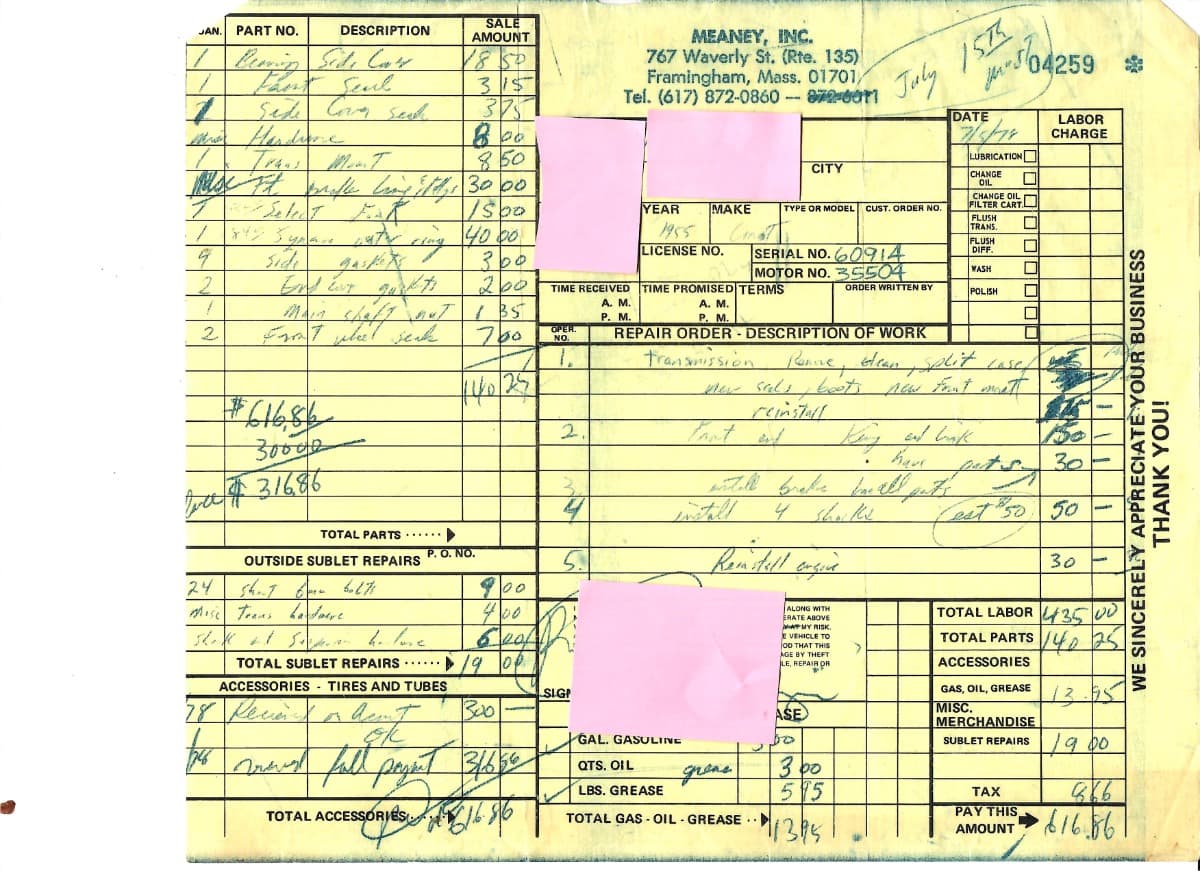 UAN. PART NO. DESCRIPTION SALE AMOUNT
1 Bearing Side Cover 18 50
1 Front Seal 3 15
1 Side Cover seal 3 75
misc Hardware 8 00
1 Trans Mount 8 50
Misc Ft. brake lining 30 00
1 Select Fork 15 00
1 water ring 40 00
9 Side gaskets 3 00
2 End cover gaskets 2 00
1 Main shaft nut 1 35
2 Front wheel seals 7 00
140 25
$616.86
300 00
$316.86
TOTAL PARTS
OUTSIDE SUBLET REPAIRS P. O. NO.
24 bolts 9 00
Misc Trans hardware 4 00
6 00
TOTAL SUBLET REPAIRS 19 00
ACCESSORIES - TIRES AND TUBES
78 Received on Acount 300 —
OK
received full payment 316 86
TOTAL ACCESSORIES 616.86
MEANEY, INC.
767 Waverly St. (Rte. 135)
Framingham, Mass. 01701
Tel. (617) 872-0860 — 872-6011
July 15th
04259
DATE LABOR CHARGE
LUBRICATION
CHANGE OIL
CHANGE OIL FILTER CART.
FLUSH TRANS.
FLUSH DIFF.
WASH
POLISH
CITY
YEAR MAKE TYPE OR MODEL CUST. ORDER NO.
1955
LICENSE NO. SERIAL NO. 60914
MOTOR NO. 35504
TIME RECEIVED TIME PROMISED TERMS ORDER WRITTEN BY
A. M. A. M.
P. M. P. M.
OPER. NO. REPAIR ORDER - DESCRIPTION OF WORK
1. Transmission Remove, clean, split case,
new seals, boots new front mount
reinstall
2. Front end King and link 150 —
have parts 30 —
3. install brake small parts
4 install 4 shocks (est $50) 50 —
5. Reinstall engine 30 —
ALONG WITH
ERATE ABOVE
AT MY RISK.
E VEHICLE TO
OD THAT THIS
AGE BY THEFT
LE, REPAIR OR
SIGN
ASE
GAL. GASOLINE
QTS. OIL grease 3 00
LBS. GREASE 5 95
TOTAL GAS - OIL - GREASE 13 95
TOTAL LABOR 435 00
TOTAL PARTS 140 25
ACCESSORIES
GAS, OIL, GREASE 13.95
MISC. MERCHANDISE
SUBLET REPAIRS 19 00
TAX 8 66
PAY THIS AMOUNT 616.86
WE SINCERELY APPRECIATE YOUR BUSINESS
THANK YOU!